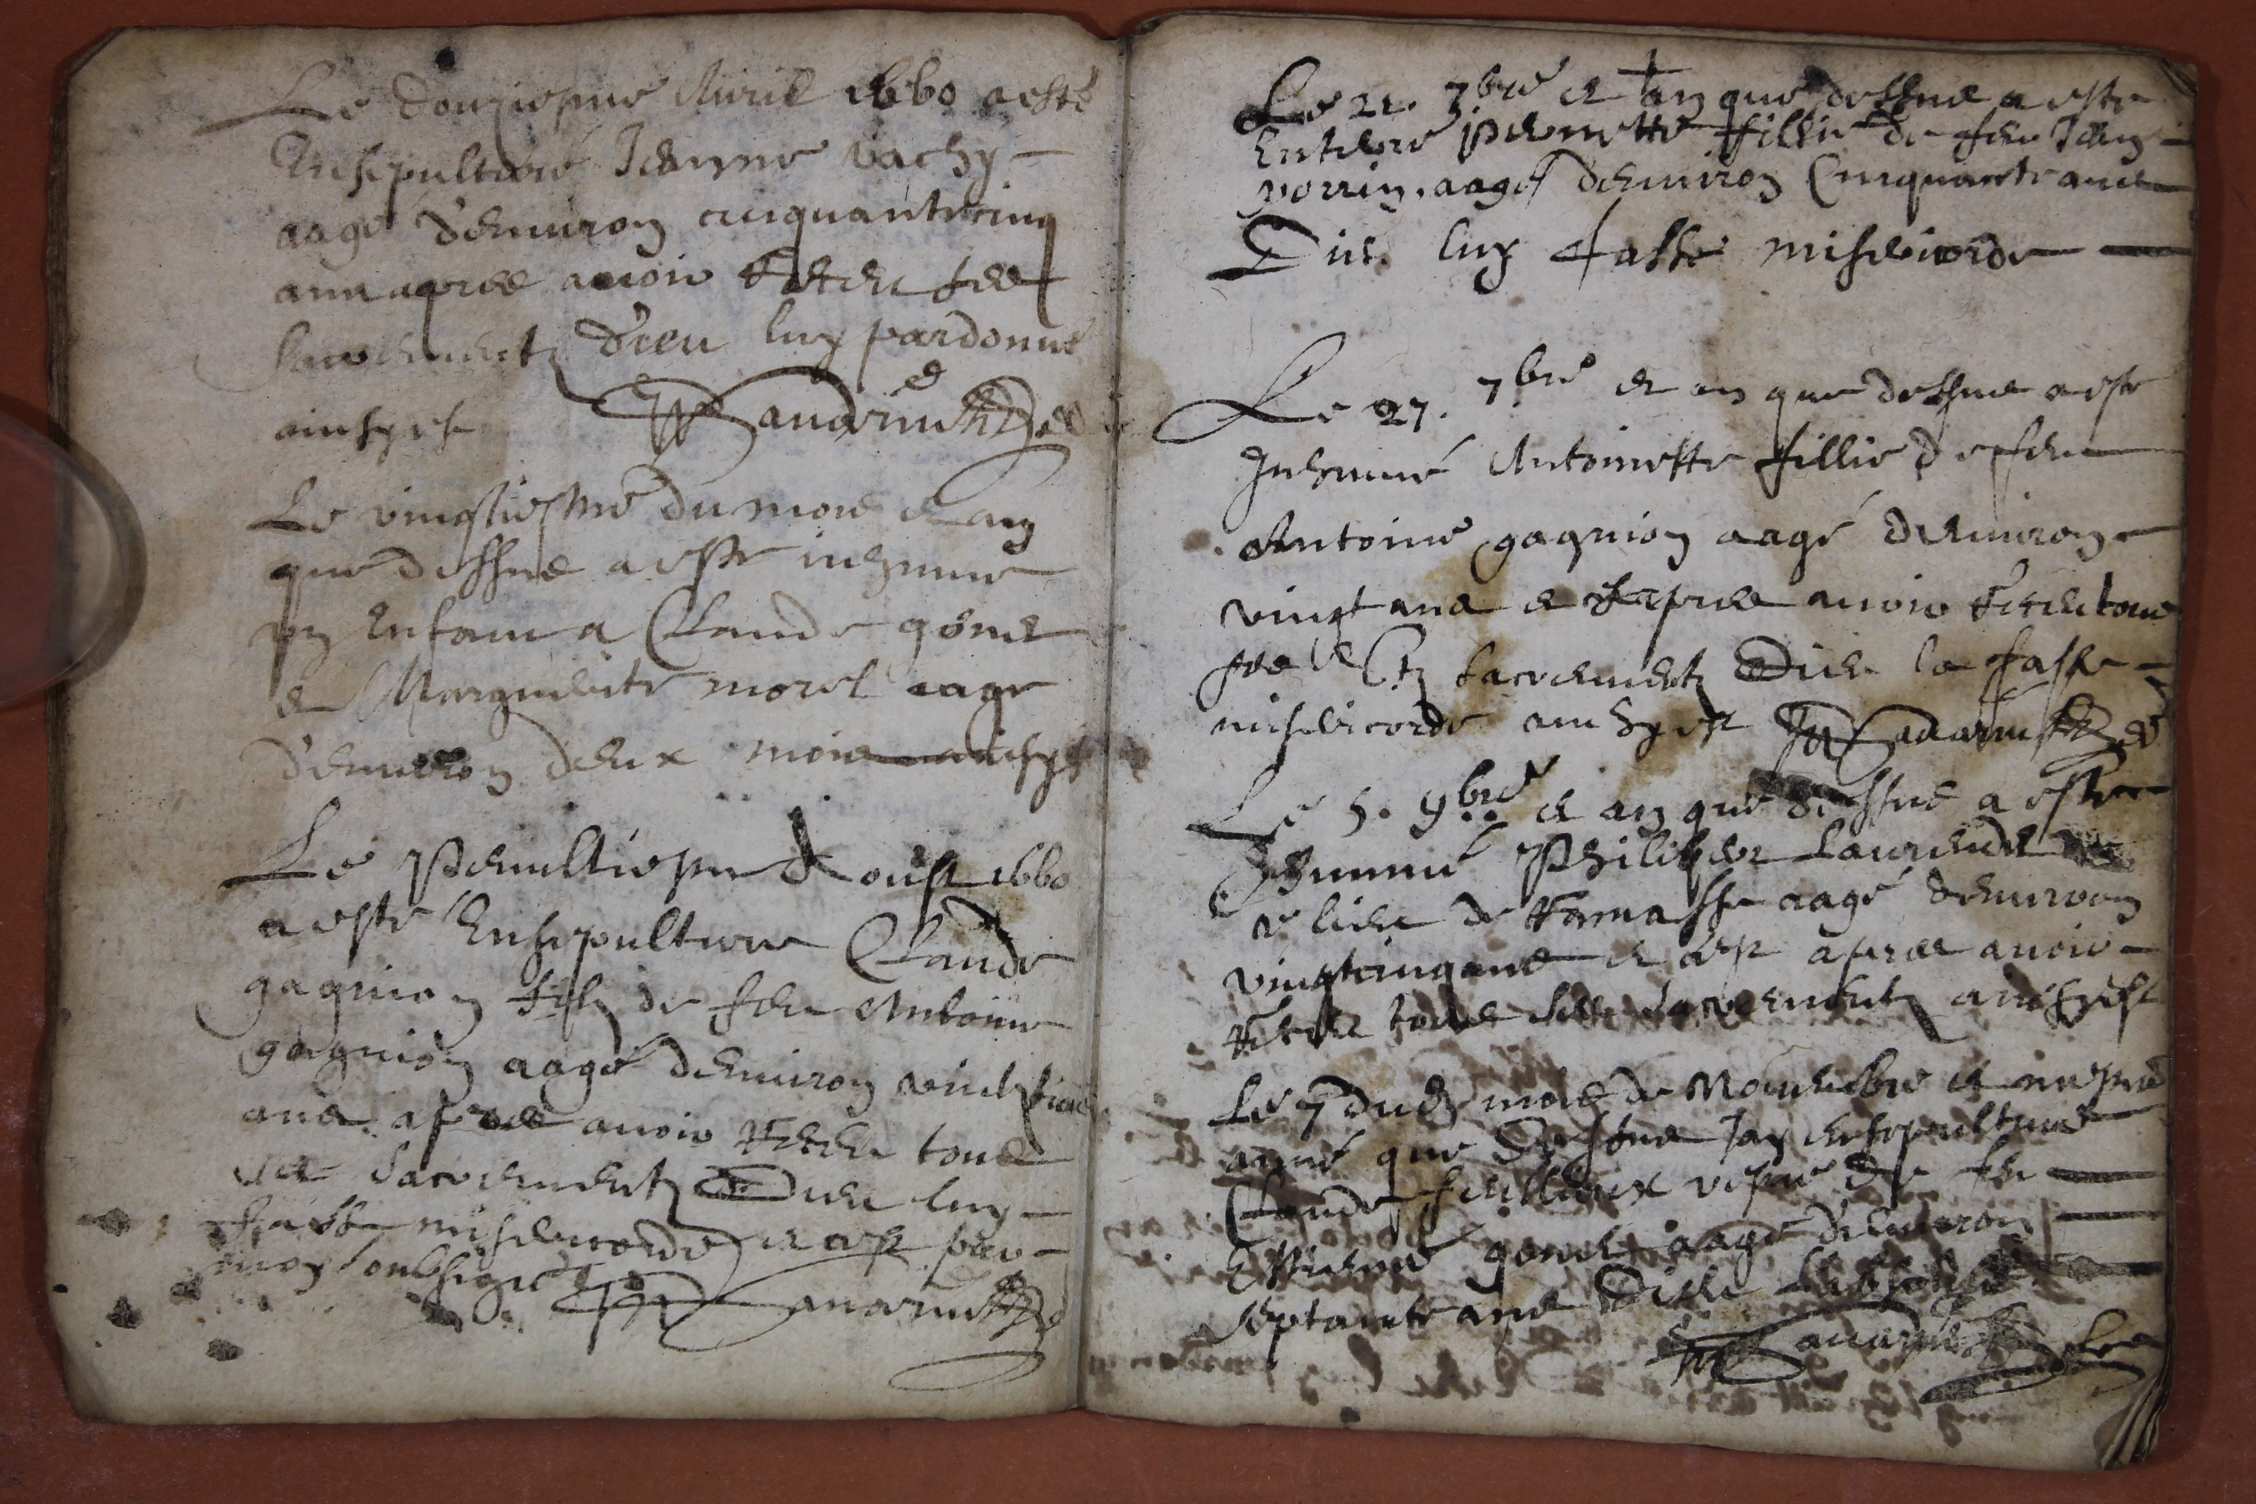 Le douziesme Avril 1660 a esté
Ensepulturé Jeanne vachy
aagé d'environ cinquantecinq
ans apres avoir receu les
sacrements Dieu luy pardonne
ainsy est
Le vingtiesme du mois et an
que dessus a esté inhumé
un enfant a Claude gonet
et Marguerite morel aagé
d'environ deux mois ainsy est
Le Penultiesme d'oust 1660
a esté Ensepulturé Claude
gagnion filz de feu Antoine
gagnion aagé d'environ
ans apres avoir receu tous
les sacrements Dieu luy
fasse misericorde et ce par
moy soubsigné
Le 21. 7bre et an que dessus a esté
Enterré pernette fillie de feu Jean
vorrin aagé d'environ Cinquante ans
Dieu luy fasse misericorde
Le 27. 7bre et an que dessus a esté
Inhumé Antoinette fillie de feu
Antoine gagnion aagé d'environ
vingt ans et apres avoir receu tous
les sacrements Dieu la fasse
misericorde ainsy est
Le 5. 9bre et an que dessus a esté
Inhumé Philiber Laurendet
lieu de Ramasse aagé d'environ
vingtcinq ans et apres avoir
receu tous les sacrements ainsy est
Le 7 dud mois de Novembre et mesme
année que dessus Jay ensepulturé
Claude vefve de feu
Estienne gonet aagé d'environ
septante ans Dieu l'absolve
Le